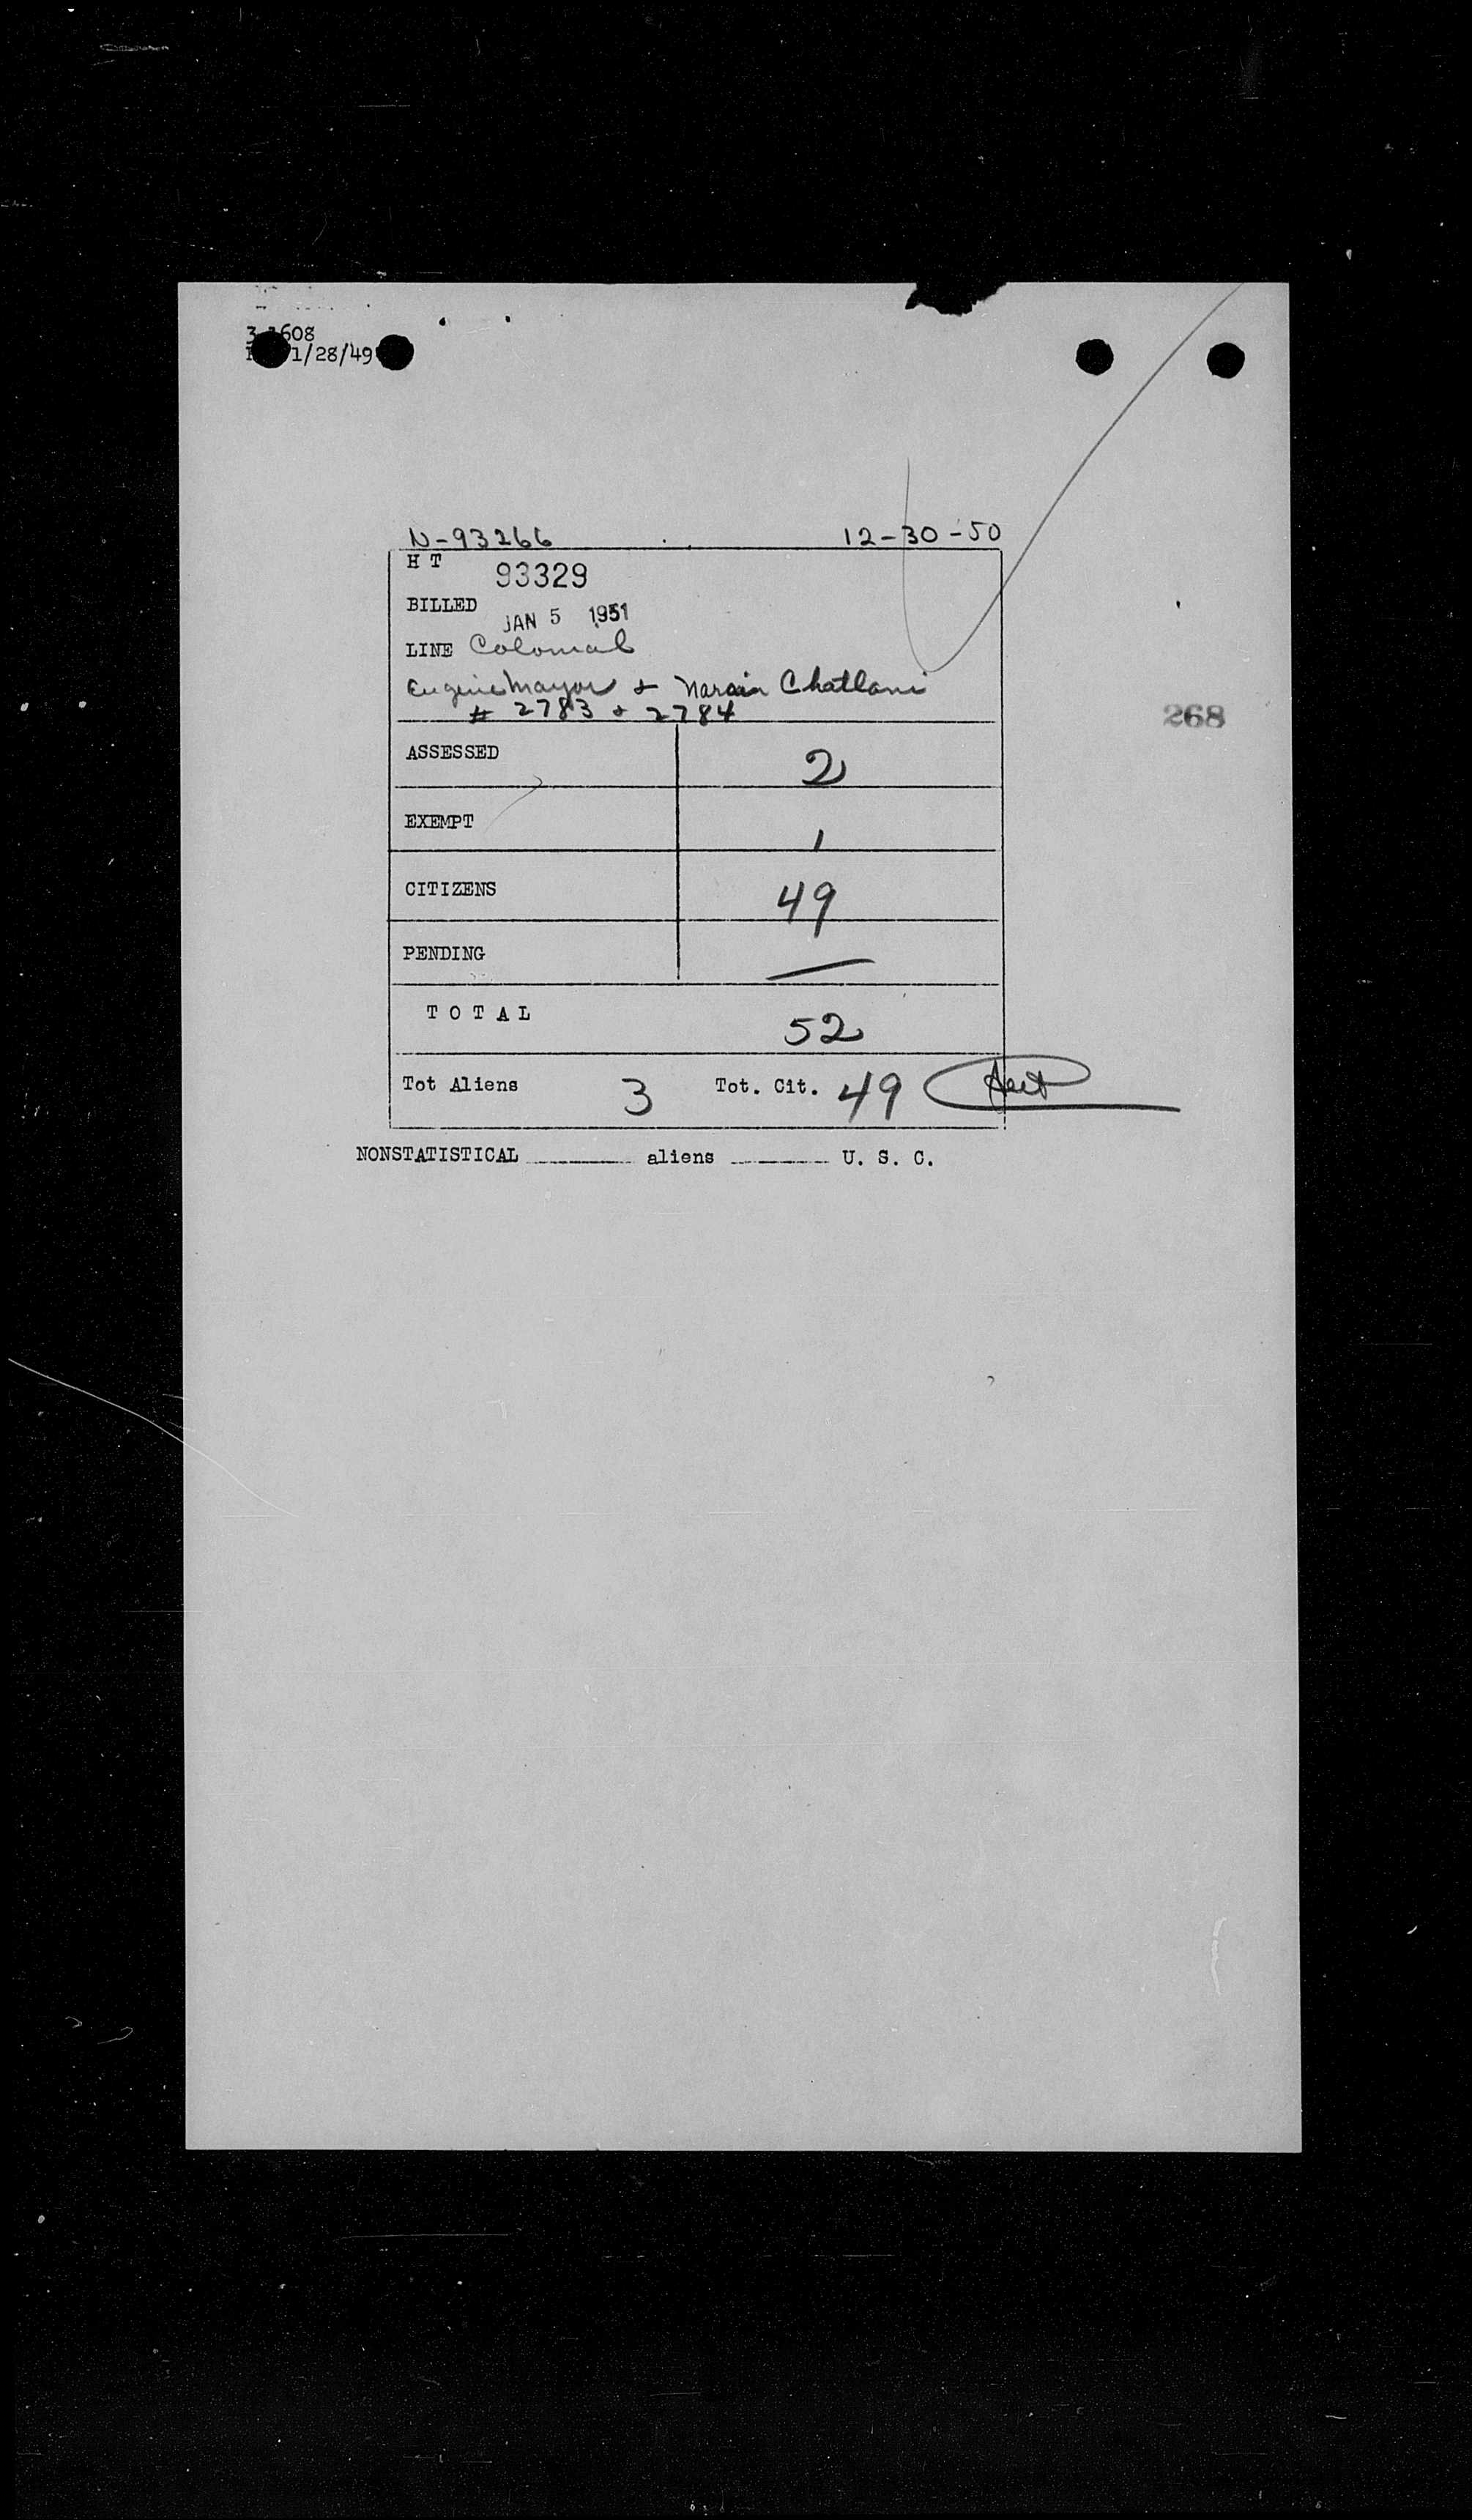 1/28/49
N-93266 12-30-50
H T 93329
BILLED JAN 5 1951
LINE Colonial
Eugenie Mayor & Narain Chatlani
# 2783 & 2784
268
ASSESSED 2
EXEMPT 1
CITIZENS 49
PENDING —
T O T A L 52
Tot Aliens 3 Tot. Cit. 49
NONSTATISTICAL aliens U. S. C.